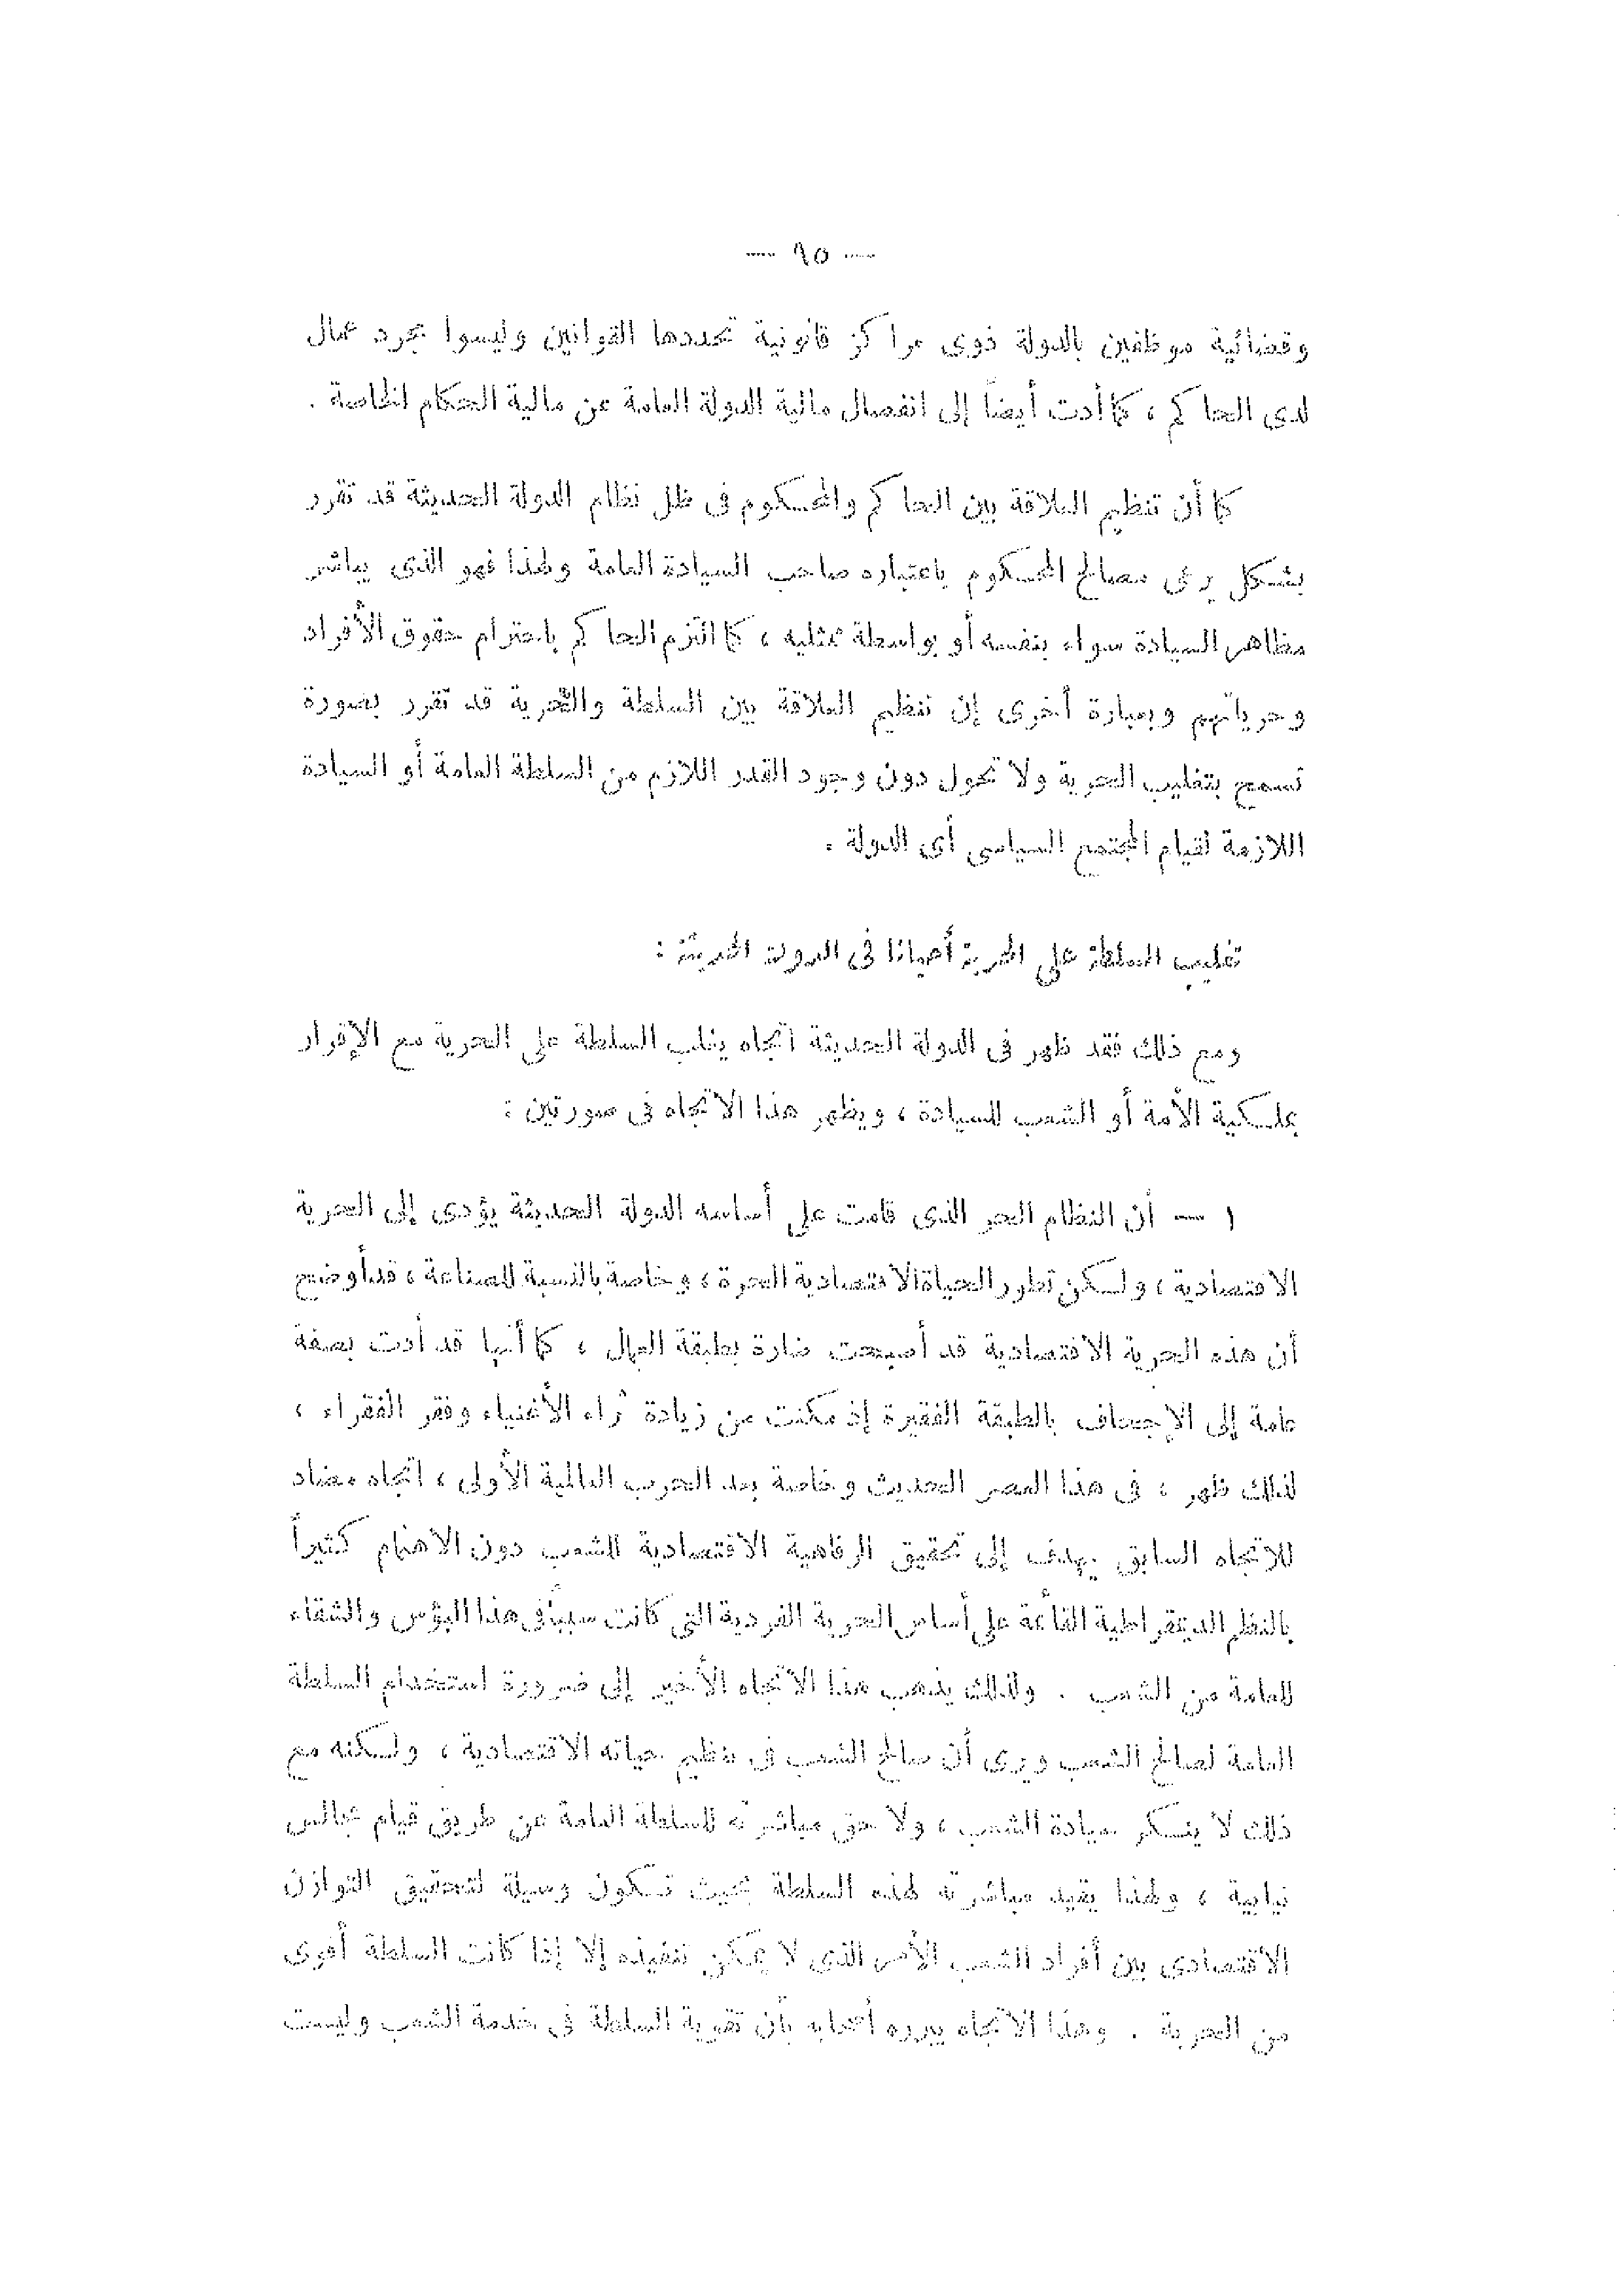 — ٩٥ —
وقضائية موظفين بالدولة ذوى مراكز قانونية تحددها القوانين وليسوا مجرد عمال
لدى الحاكم ، كما أدت أيضاً إلى انفصال مالية الدولة العامة عن مالية الحكام الخاصة .
كما أن تنظيم العلاقة بين الحاكم والمحكوم فى ظل نظام الدولة الحديثة قد تقرر
بشكل يرعى مصالح المحكوم باعتباره صاحب السيادة العامة ولهذا فهو الذى يباشر
مظاهر السيادة سواء بنفسه أو بواسطة ممثليه ، كما التزم الحاكم باحترام حقوق الأفراد
وحرياتهم وبعبارة أخرى إن تنظيم العلاقة بين السلطة والحرية قد تقرر بصورة
تسمح بتغليب الحرية ولا تحول دون وجود القدر اللازم من السلطة العامة أو السيادة
اللازمة لقيام المجتمع السياسى أى الدولة .
تغليب السلطة على الحرية أحيانا فى الدولة الحديثة :
ومع ذلك فقد ظهر فى الدولة الحديثة اتجاه يغلب السلطة على الحرية مع الإقرار
بملكية الأمة أو الشعب للسيادة ، ويظهر هذا الاتجاه فى صورتين :
١ — أن النظام الحر الذى قامت على أساسه الدولة الحديثة يؤدى إلى الحرية
الاقتصادية ، ولكن تطور الحياة الاقتصادية الحرة ، وخاصة بالنسبة للصناعة ، قد أوضح
أن هذه الحرية الاقتصادية قد أصبحت ضارة بطبقة العمال ، كما أنها قد أدت بصفة
عامة إلى الإجحاف بالطبقة الفقيرة إذ مكنت من زيادة ثراء الأغنياء وفقر الفقراء ،
لذلك ظهر ، فى هذا العصر الحديث وخاصة بعد الحرب العالمية الأولى ، اتجاه مضاد
للاتجاه السابق يهدف إلى تحقيق الرفاهية الاقتصادية للشعب دون الاهتمام كثيراً
بالنظم الديمقراطية القائمة على أساس الحرية الفردية التى كانت سبباً فى هذا البؤس والشقاء
للعامة من الشعب . ولذلك يذهب هذا الاتجاه الأخير إلى ضرورة استخدام السلطة
العامة لصالح الشعب ويرى أن صالح الشعب فى تنظيم حياته الاقتصادية ، ولكنه مع
ذلك لا ينكر سيادة الشعب ، ولا حق مباشرته للسلطة العامة عن طريق قيام مجالس
نيابية ، ولهذا يقيد مباشرته لهذه السلطة بحيث تكون وسيلة لتحقيق التوازن
الاقتصادى بين أفراد الشعب الأمر الذى لا يمكن تنفيذه إلا إذا كانت السلطة أقوى
من الحرية . وهذا الاتجاه يبرره أصحابه بأن تقوية السلطة فى خدمة الشعب وليست